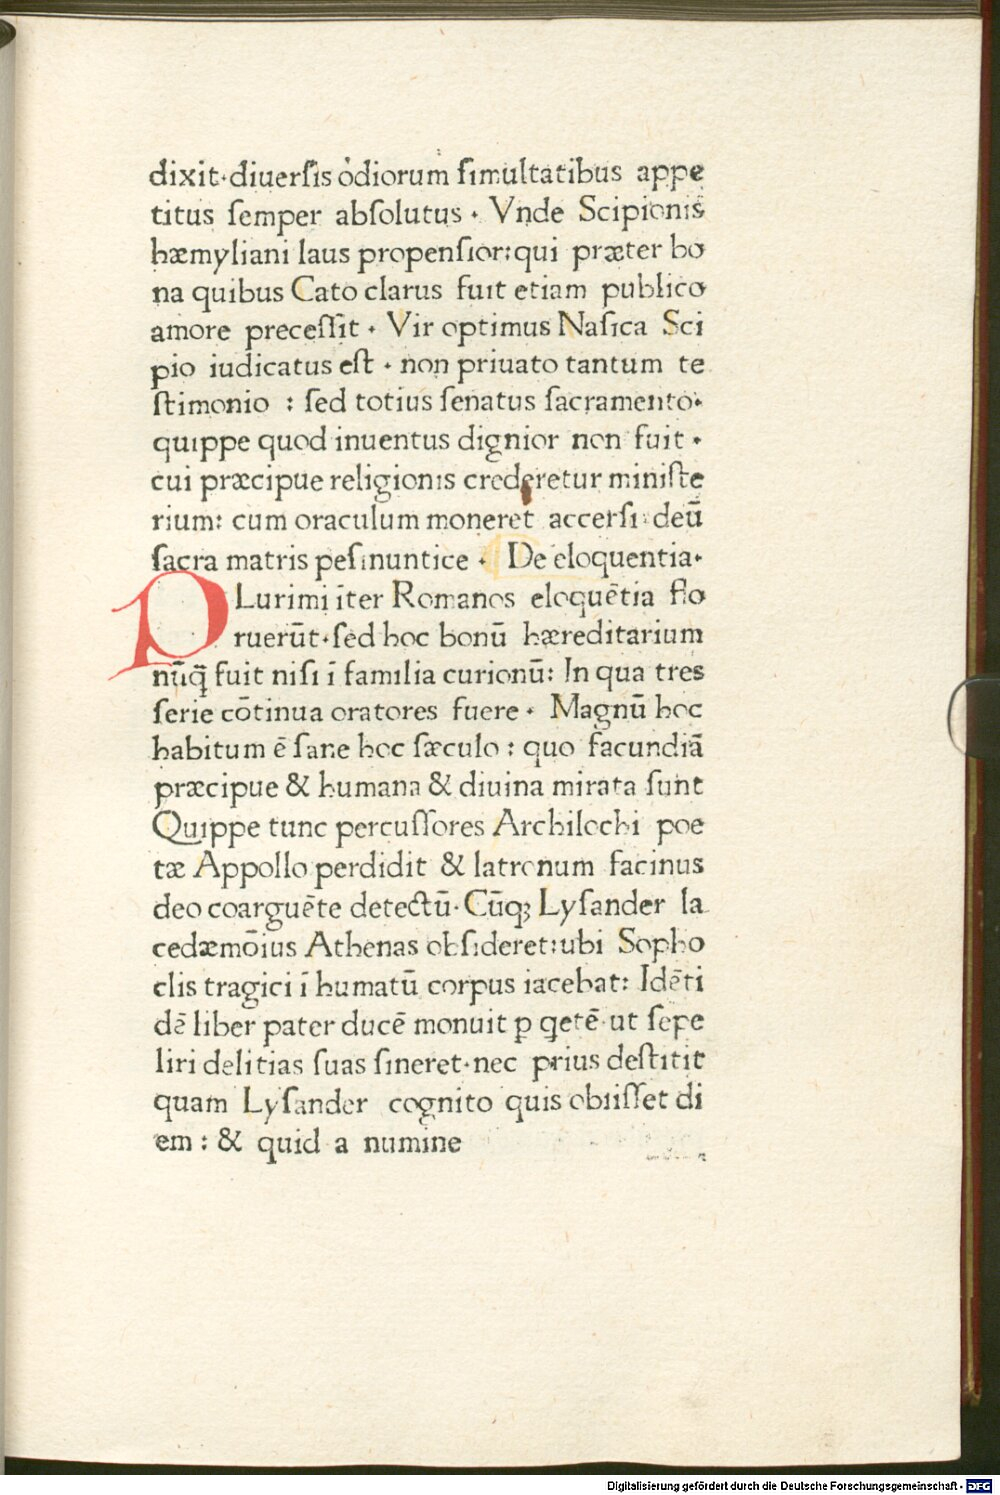 dixit·diuerſis odiorum ſimultatibus appe
titus ſemper abſolutus · Vnde Scipionis
hæmyliani laus propenſior:qui præter bo
na quibus Cato clarus fuit etiam publico
amore preceſſit · Vir optimus Naſica Sci
pio iudicatus eſt · non priuato tantum te
ſtimonio : ſed totius ſenatus ſacramento·
quippe quod inuentus dignior non fuit ·
cui præcipue religionis crederetur miniſte
rium: cum oraculum moneret accerſi deū
ſacra matris peſinuntice · De eloquentia·
PLurimi īter Romanos eloquētia flo
ruerūt·ſed hoc bonū hæreditarium
nūq̄ fuit niſi ī familia curionū: In qua tres
ſerie cōtinua oratores fuere · Magnū hoc
habitum ē ſane hoc ſæculo : quo facundiā
præcipue & humana & diuina mirata ſunt
Quippe tunc percuſſores Archilochi poe
tæ Appollo perdidit & latronum facinus
deo coarguēte detectū· Cūq; Lyſander la
cedæmōius Athenas obſideret:ubi Sopho
clis tragici ī humatū corpus iacebat: Idēti
dē liber pater ducē monuit p q̇etē·ut ſepe
liri delitias ſuas ſineret·nec prius deſtitit
quam Lyſander cognito quis obiiſſet di
em : & quid a numine
Digitalisierung gefördert durch die Deutsche Forschungsgemeinschaft - DFG